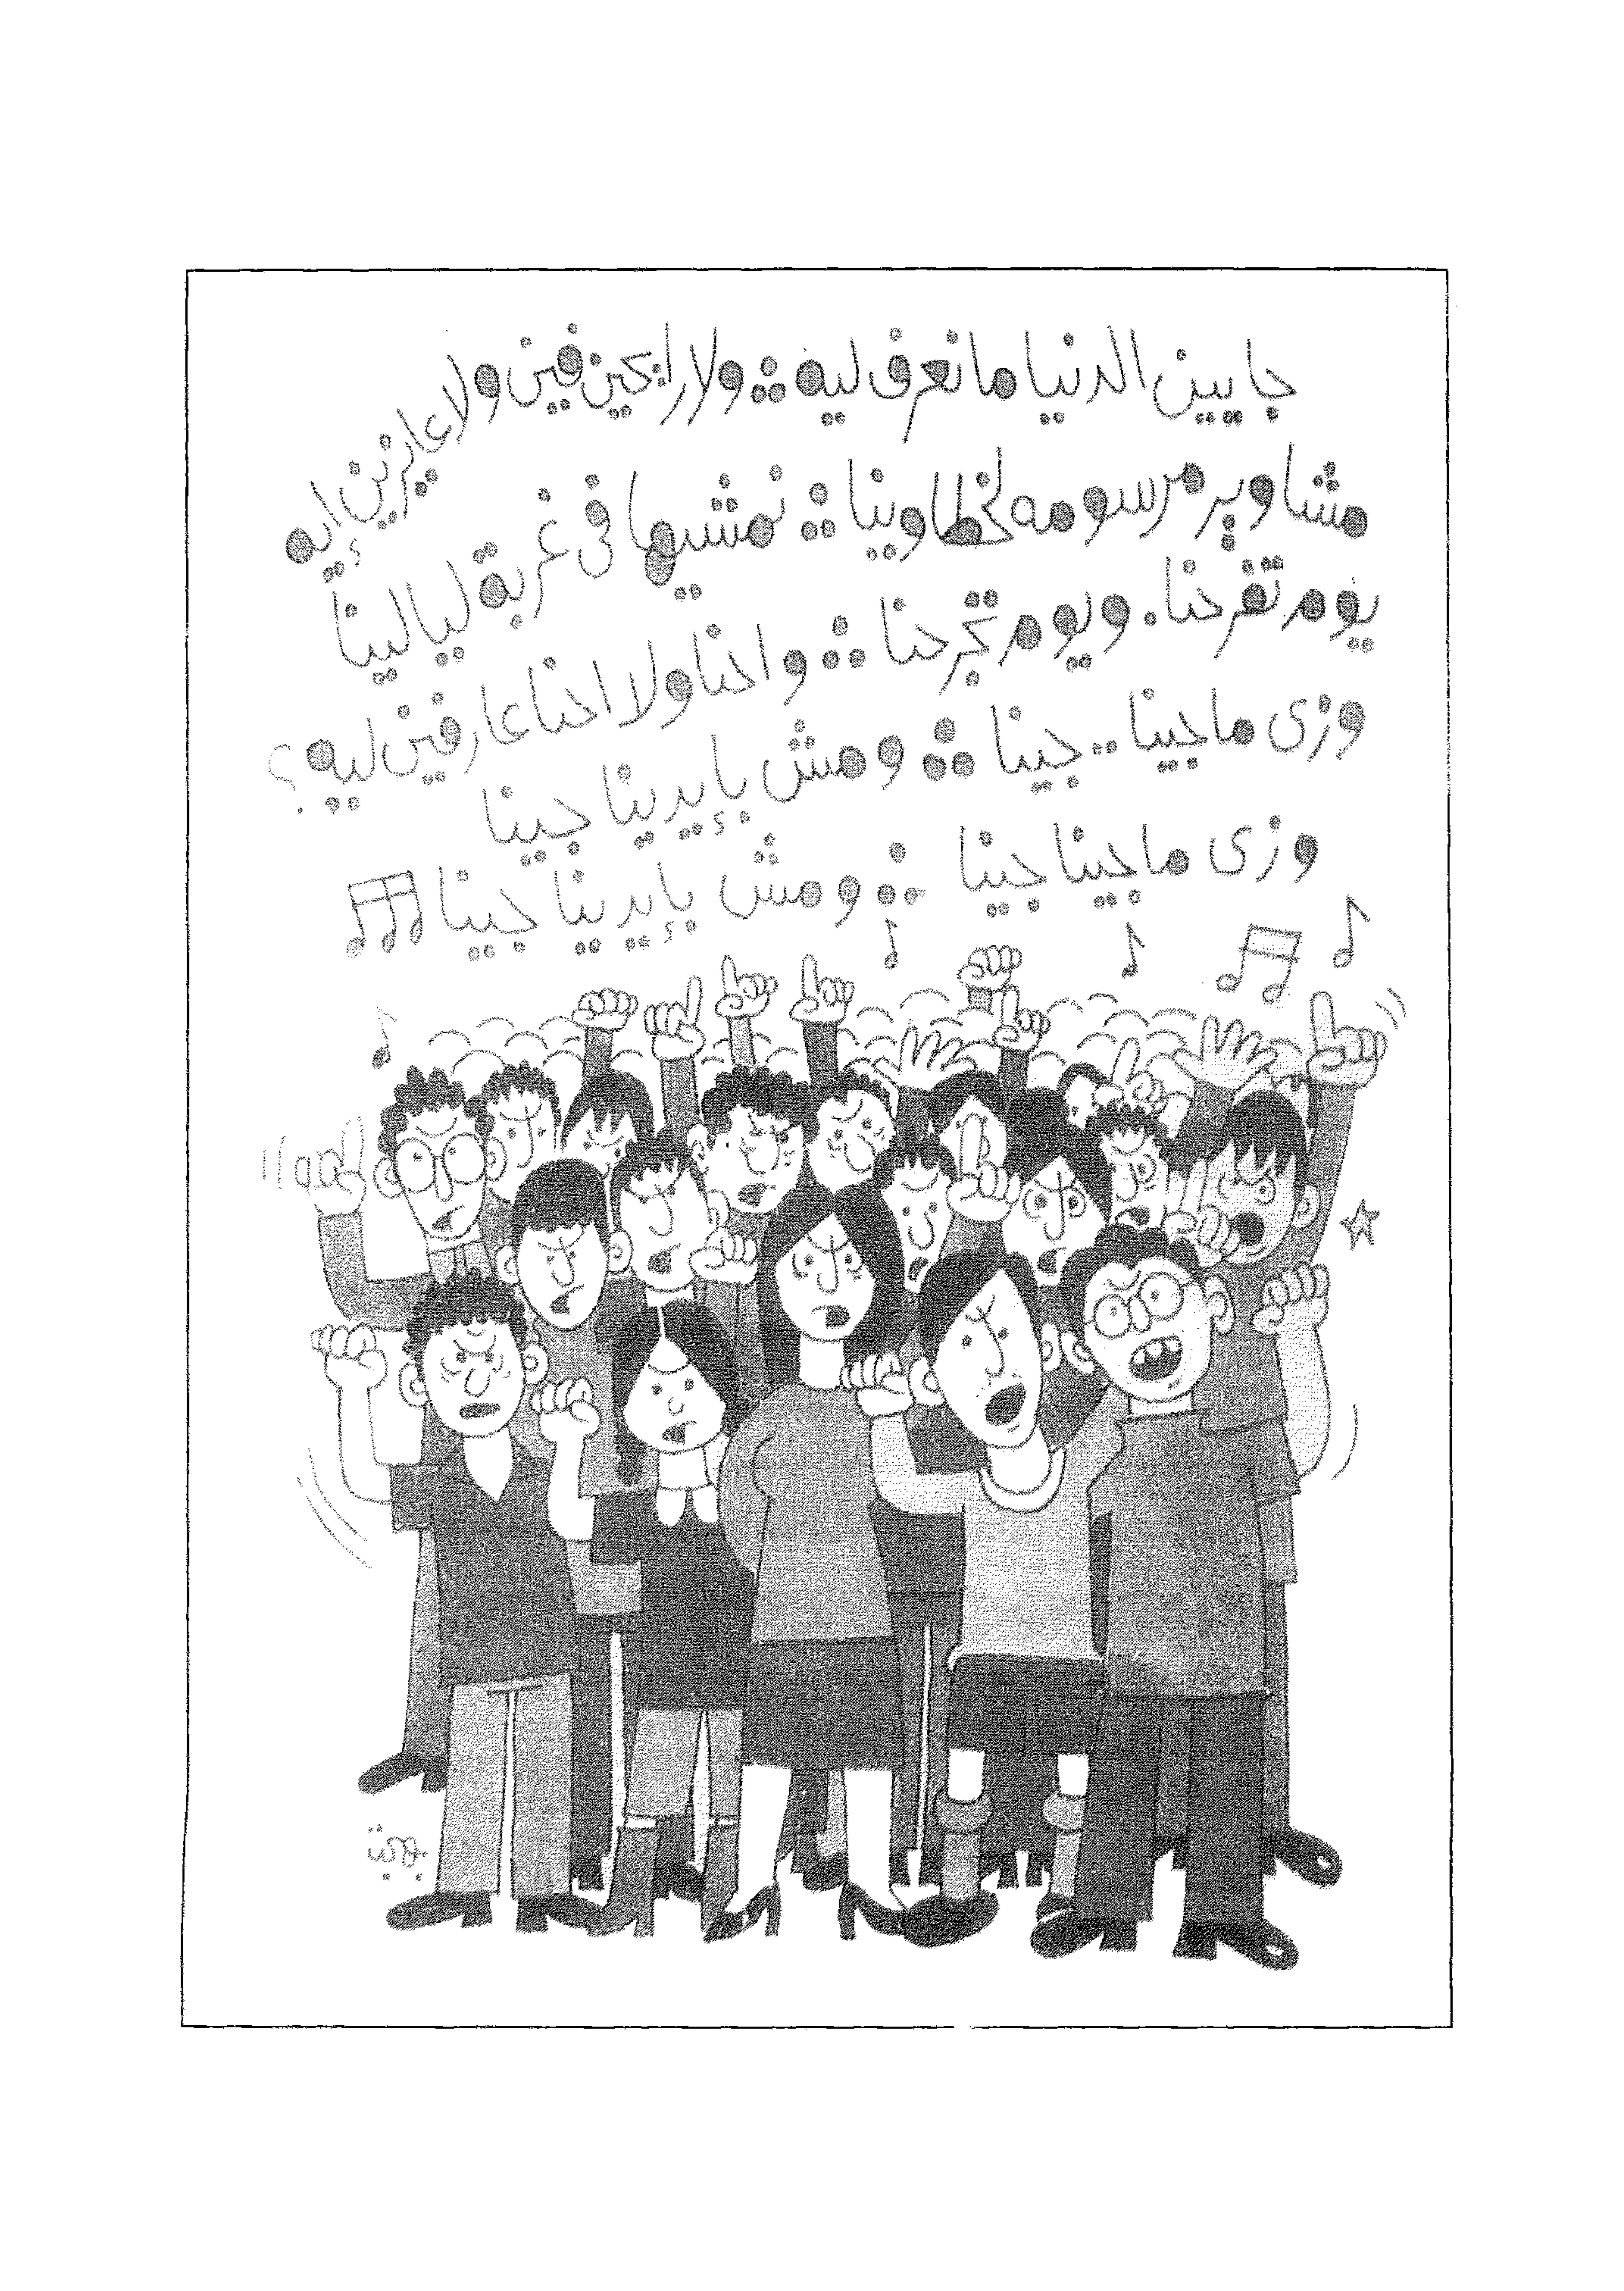 جايين الدنيا ما نعرف ليه ⁖ ولا رايحين فين ولا عايزين إيه
مشاوير مرسومه لخطاوينا ⁖ نمشيها فى غربة ليالينا
يوم تفرحنا. ويوم تجرحنا ⁖ واحنا ولا احنا عارفين ليه؟
وزى ما جينا.. جينا ⁖ ومش بإيدينا جينا
وزى ما جينا جينا ⁖ ومش بإيدينا جينا